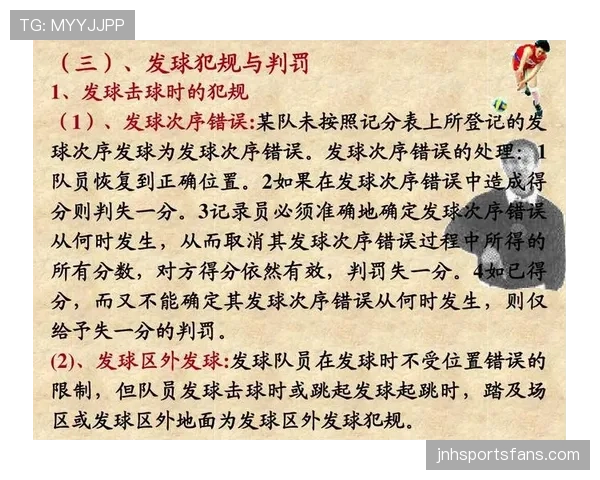 TG: MYYJJPP
（三）、发球犯规与判罚
1、发球击球时的犯规
（1）、发球次序错误:某队未按照记分表上所登记的发
球次序发球为发球次序错误。发球次序错误的处理：1
队员恢复到正确位置。2如果在发球次序错误中造成得
分则判失一分。3记录员必须准确地确定发球次序错误
从何时发生，从而取消其发球次序错误过程中所得的
所有分数，对方得分依然有效，判罚失一分。4如已得
分，而又不能确定其发球次序错误从何时发生，则仅
给予失一分的判罚。
(2)、发球区外发球:发球队员在发球时不受位置错误的
限制，但队员发球击球时或跳起发球起跳时，踏及场
区或发球区外地面为发球区外发球犯规。
jnhsportsfans.com